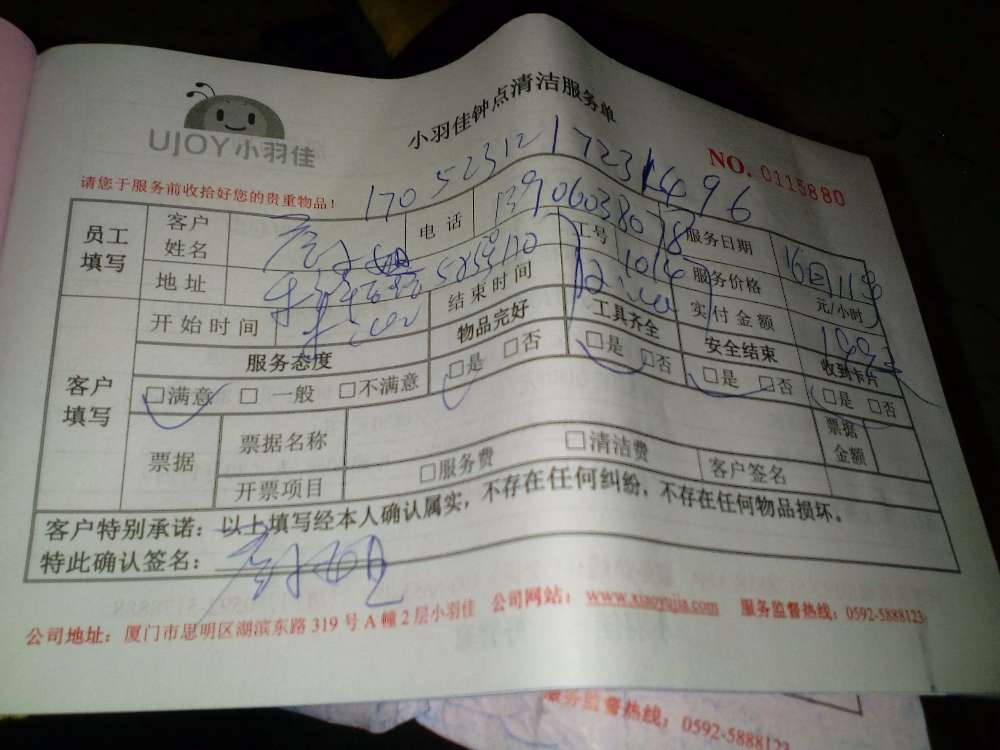 小羽佳钟点清洁服务单
UJOY小羽佳
NO. 0115880
1705231217231496
请您于服务前收拾好您的贵重物品！
员工填写 客户姓名 电话 13906038078 工号 1014 服务日期
地址 结束时间 服务价格 元/小时
开始时间 实付金额
客户填写 服务态度 物品完好 工具齐全 安全结束 收到卡片
□满意 □一般 □不满意 □是 □否 □是 □否 □是 □否 □是 □否
票据 票据名称 票据金额
开票项目 □服务费 □清洁费 客户签名
客户特别承诺：以上填写经本人确认属实，不存在任何纠纷，不存在任何物品损坏。
特此确认签名：
公司地址：厦门市思明区湖滨东路319号A幢2层小羽佳 公司网站：www.xiaoyujia.com 服务监督热线：0592-5888123
服务监督热线：0592-5888123